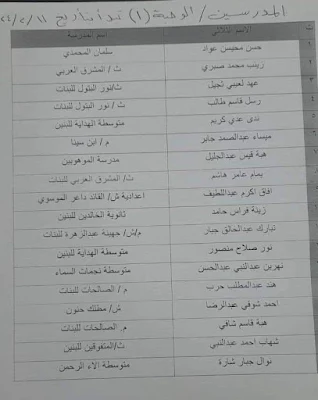 المدرسين / الوجبة (١) تبدأ بتأريخ
ت الاسم الثلاثي اسم المدرسة
حسن محيسن عواد سلمان المحمدي
زينب محمد صبري ث/ المشرق العربي
عهد لعيبي ثجيل ث/نور البتول للبنات
رسل قاسم طالب ث / نور البتول للبنات
ندى عدي كريم متوسطة الهداية للبنين
ميساء عبدالصمد جابر م / ابن سينا
هبة قيس عبدالجليل مدرسة الموهوبين
بسام عامر هاشم ث/ المشرق العربي للبنات
افاق اكرم عبداللطيف اعدادية ش/ القائد داغر الموسوي
زينة فراس حامد ثانوية الخالدين للبنين
تبارك عبدالخالق جبار م/ش/ جهينة عبدالزهرة للبنات
نور صلاح منصور متوسطة الهداية للبنين
نهرين عبدالنبي عبدالحسن متوسطة نجمات السماء
هند عبدالمطلب حرب م / الصالحات للبنات
احمد شوقي عبدالرضا ش/ مطلك حنون
هبة قاسم شافي م. الصالحات للبنات
شهاب احمد عبدالنبي ث/المتفوقين للبنين
نوال جبار شارة متوسطة الاء الرحمن